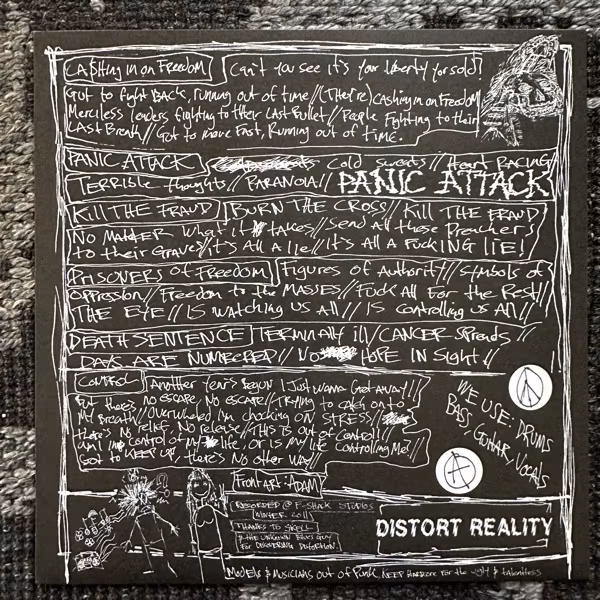 CA$Hing in on Freedom Can't you see it's your liberty you sold?
Got to fight BACK, running out of time // (They're) Cashing in on Freedom
Merciless leaders, fighting to their last Bullet // People Fighting to their
LAST Breath // Got to move Fast, Running out of time.
PANIC ATTACK Cold sweats // Heart RACING
Terrible thoughts // PARANOIA // PANIC ATTACK
Kill THE FRAUD BURN THE CROSS / Kill THE FRAUD
No MATTER what it takes // Send All these Preachers
to their Graves // it's All A lie // it's All A FuckING LIE!
PRISONERS OF FREEDOM Figures of Authority // Symbols of
oppression // Freedom to the MASSES // Fuck All For the Rest //
THE EYE // IS watching us All // IS controlling us All //
DEATH SENTENCE TERMINALLY ill / CANCER SPreads //
DAYS ARE NUMBERED // NO HOPE IN Sight //
CONTROL Another Year's Begun I Just wanna Get away //
But there's no escape, No escape // Trying to catch onto
My Breath // Overwhelmed, I'm choking ON STRESS //
there's No relief, No release // THIS IS out of Control //
Am I in control of my life, or is my life Controlling Me?
Got to KEEP UP, there's No other WAY //
WE USE: DRUMS
BASS, GUITAR, VOCALS
Front art: ADAM
RECORDED @ F-SHACK STUDIOS
WINTER 2011
THANKS TO
& THE UNKNOWN BLUES GUY
For DISCOVERING DISTORTION.
DISTORT REALITY
Models & Musicians out of Punk, KEEP Hardcore For the ugly & talentless